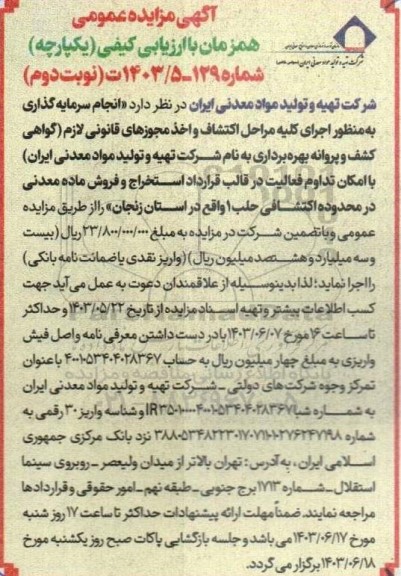 آگهی مزایده عمومی
همزمان با ارزیابی کیفی (یکپارچه)
شماره ۱۲۹-۱۴۰۳/۵ت (نوبت دوم)
شرکت تهیه و تولید مواد معدنی ایران در نظر دارد «انجام سرمایه گذاری
به منظور اجرای کلیه مراحل اکتشاف و اخذ مجوزهای قانونی لازم (گواهی
کشف و پروانه بهره برداری به نام شرکت تهیه و تولید مواد معدنی ایران)
با امکان تداوم فعالیت در قالب قرارداد استخراج و فروش ماده معدنی
در محدوده اکتشافی حلب ۱ واقع در استان زنجان» را از طریق مزایده
عمومی و با تضمین شرکت در مزایده به مبلغ ۲۳/۸۰۰/۰۰۰/۰۰۰ ریال (بیست
و سه میلیارد و هشتصد میلیون ریال) (واریز نقدی یا ضمانت نامه بانکی)
را اجرا نماید؛ لذا بدینوسیله از علاقمندان دعوت به عمل می آید جهت
کسب اطلاعات بیشتر و تهیه اسناد مزایده از تاریخ ۱۴۰۳/۰۵/۲۲ و حداکثر
تا ساعت ۱۶ مورخ ۱۴۰۳/۰۶/۰۷ با در دست داشتن معرفی نامه و اصل فیش
واریزی به مبلغ چهار میلیون ریال به حساب ۴۰۰۱۰۵۳۴۰۴۰۲۸۳۶۷ با عنوان
تمرکز وجوه شرکت های دولتی - شرکت تهیه و تولید مواد معدنی ایران
به شماره شبا IR۳۵۰۱۰۰۰۰۴۰۰۱۰۵۳۴۰۴۰۲۸۳۶۷ و شناسه واریز ۳۰ رقمی به
شماره ۳۸۸۰۵۳۴۸۲۲۳۰۱۷۰۷۱۱۰۱۲۷۶۲۴۷۱۹۸ نزد بانک مرکزی جمهوری
اسلامی ایران، به آدرس: تهران بالاتر از میدان ولیعصر - روبروی سینما
استقلال - شماره ۱۷۱۳ برج جنوبی - طبقه نهم - امور حقوقی و قراردادها
مراجعه نمایند. ضمناً مهلت ارائه پیشنهادات حداکثر تا ساعت ۱۷ روز شنبه
مورخ ۱۴۰۳/۰۶/۱۷ می باشد و جلسه بازگشایی پاکات صبح روز یکشنبه مورخ
۱۴۰۳/۰۶/۱۸ برگزار می گردد.